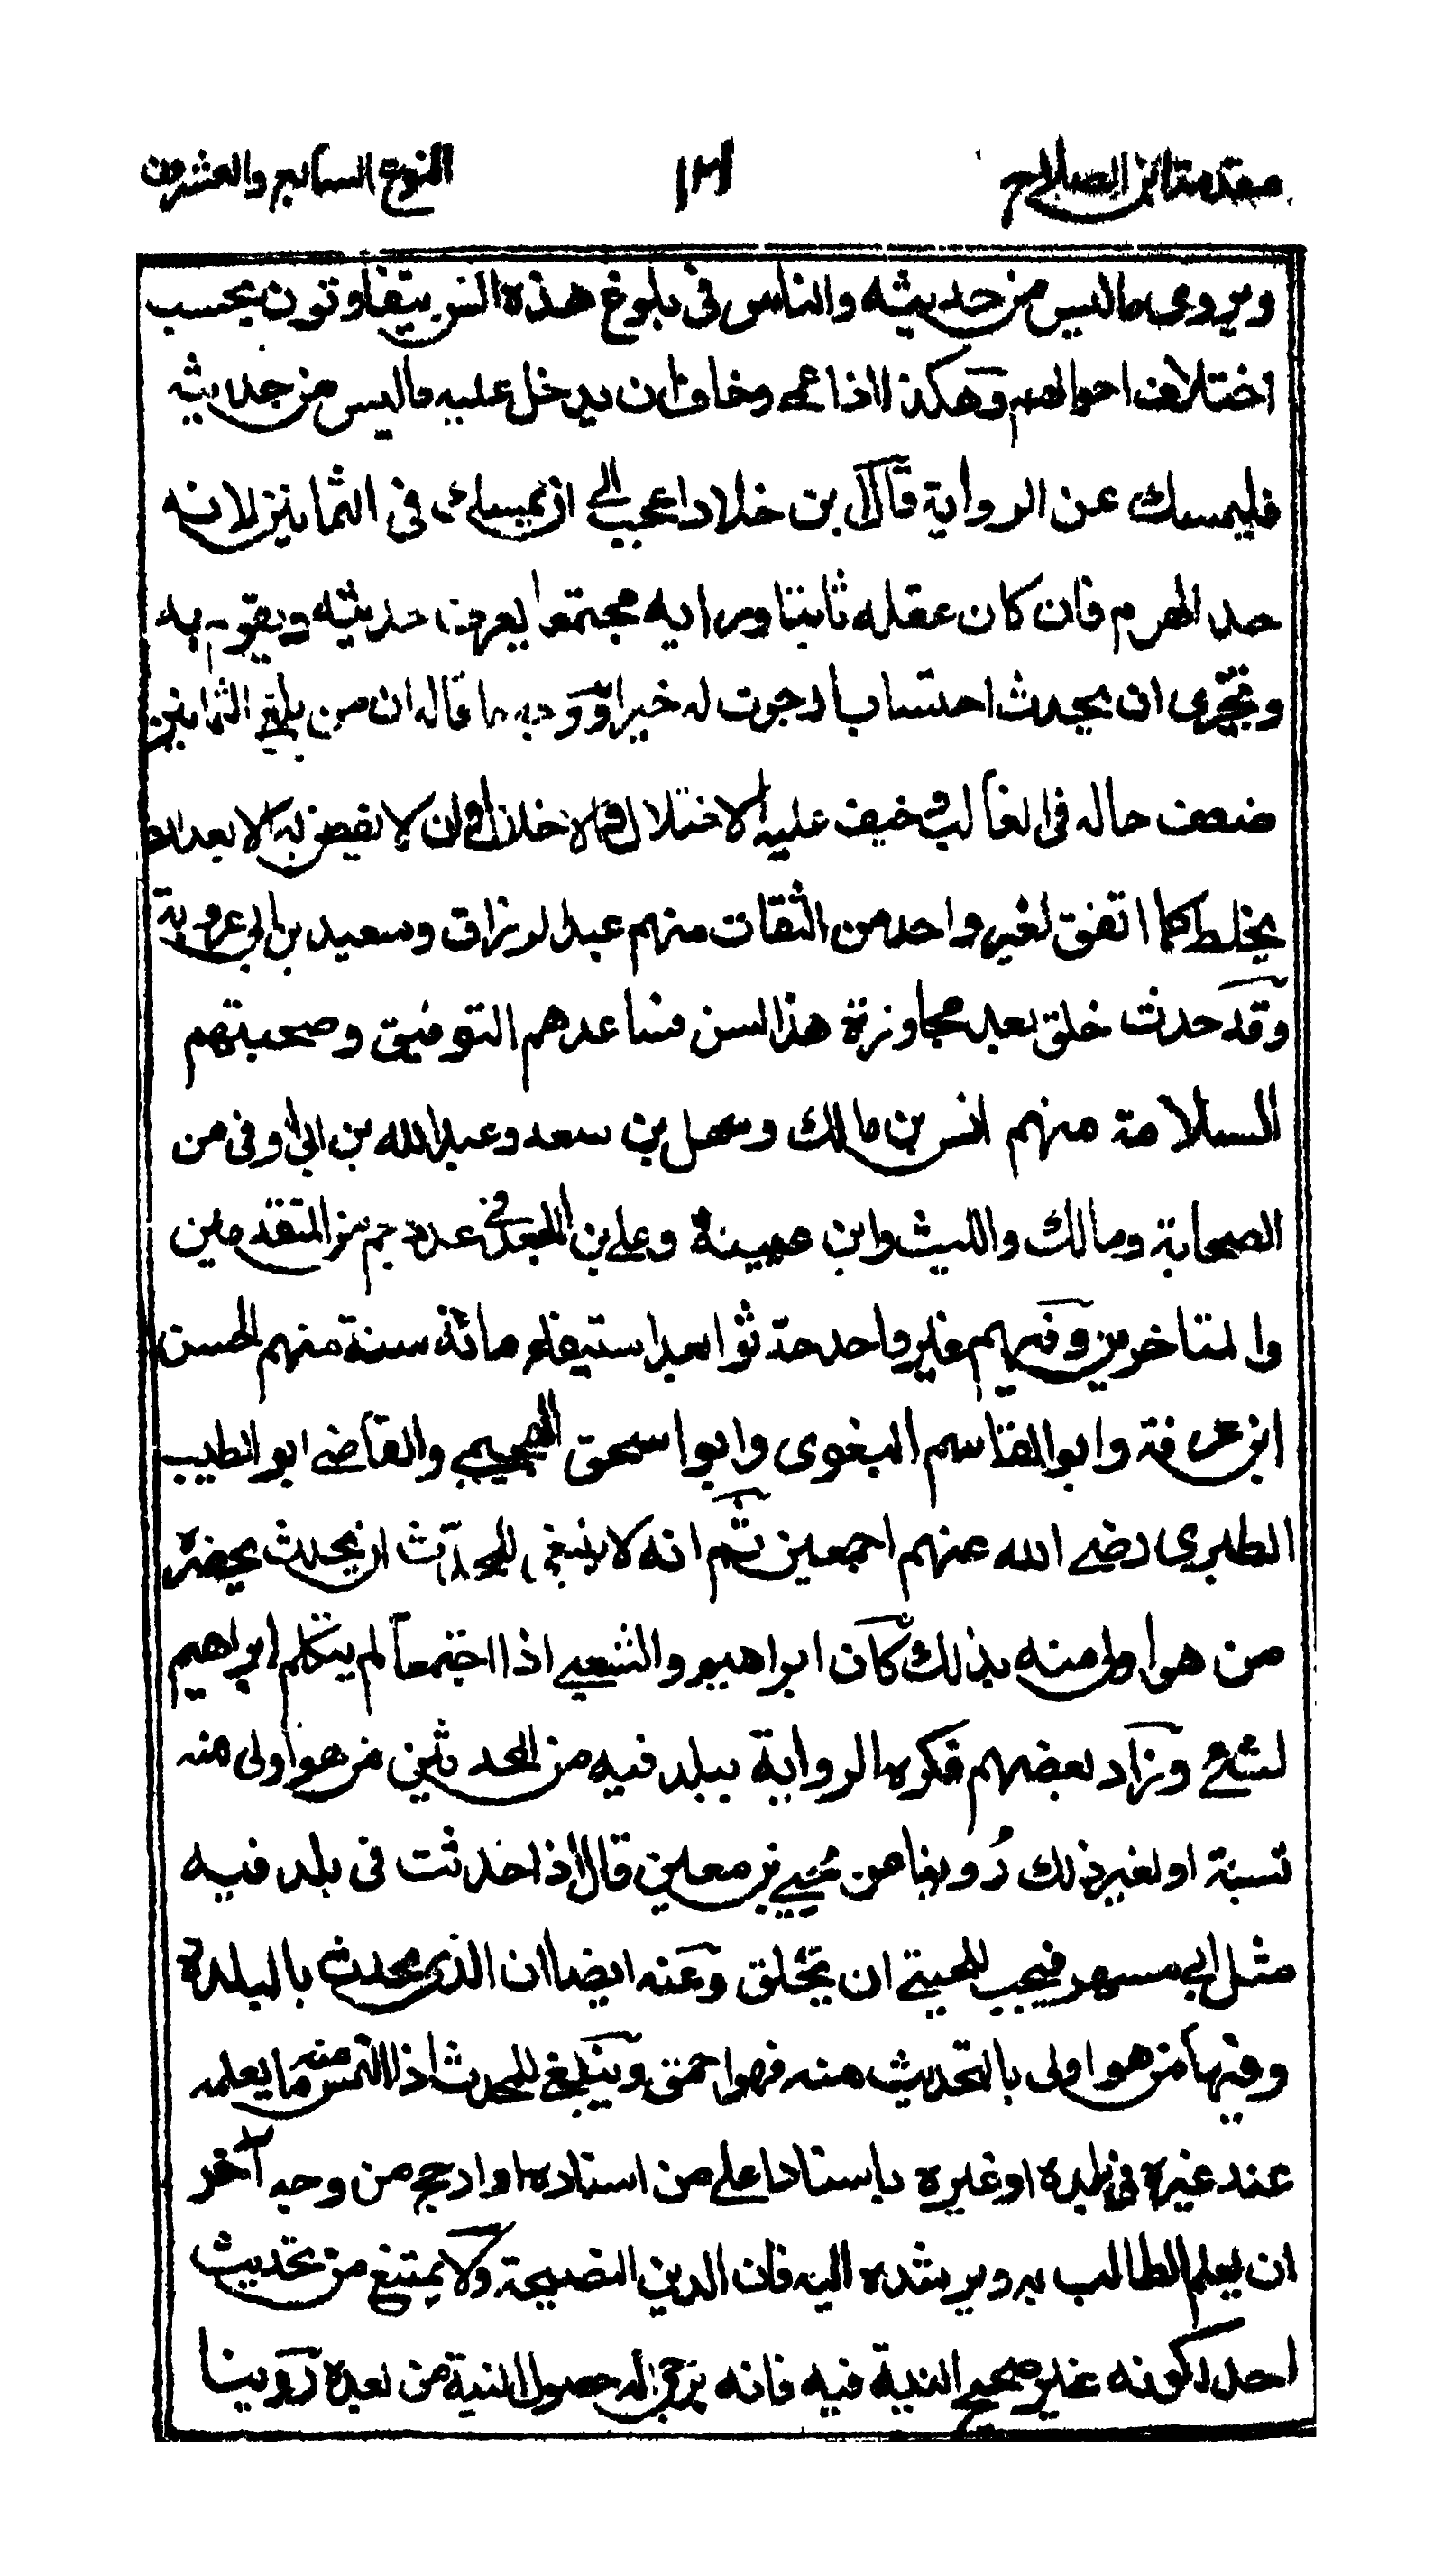 مقدمة ابن الصلاح ١٣١ النوع السابع والعشرون
ويروى ماليس من حديثه والناس فى بلوغ هذه السن يتفاوتون بحسب
اختلاف احوالهم وهكذا اذا عمى وخاف ان يدخل عليه ماليس من حديثه
فليمسك عن الرواية قال ابن خلاد اعجب الى ان يمسك فى الثمانين لانه
حد الهرم فان كان عقله ثابتا ورايه مجتمعا يعرف حديثه ويقوم به
وتحرى ان يحدث احتسابا رجوت له خيرا ووجه ما قاله ان من بلغ الثمانين
ضعف حاله فى الغالب وخيف عليه الاختلال والاخلال وان لا يفطن له الا بعد ان
يخلط كما اتفق لغير واحد من الثقات منهم عبد الرزاق وسعيد بن ابى عروبة
وقد حدث خلق بعد مجاوزة هذا السن فساعدهم التوفيق وصحبتهم
السلامة منهم انس بن مالك وسهل بن سعد وعبد الله بن ابى اوفى من
الصحابة ومالك والليث وابن عيينة وعلى بن الجعد فى عدد جم من المتقدمين
والمتاخرين وفيهم غير واحد حدثوا بعد استيفاء مائة سنة منهم الحسن
ابن عرفة وابو القاسم البغوى وابو اسحق الهجيمى والقاضى ابو الطيب
الطبرى رضى الله عنهم اجمعين ثم انه لا ينبغى للمحدث ان يحدث بحضرة
من هو اولى منه بذلك كان ابراهيم والشعبى اذا اجتمعا لم يتكلم ابراهيم
لشئ وزاد بعضهم فكره الرواية ببلد فيه من المحدثين من هو اولى منه
لسنه او لغير ذلك روينا عن يحيى بن معين قال اذا حدثت فى بلد فيه
مثل ابى مسهر فيجب للحيتى ان تحلق وعنه ايضا ان الذى يحدث بالبلدة
وفيها من هو اولى بالتحديث منه فهو احمق وينبغى للمحدث اذا التمس منه ما يعلمه
عند غيره فى بلده او غيره باسناد اعلى من اسناده او ارجح من وجه آخر
ان يعلم الطالب به ويرشده اليه فان الدين النصيحة ولا يمتنع من تحديث
احد لكونه غير صحيح النية فيه فانه يرجى له حصول النية من بعده روينا